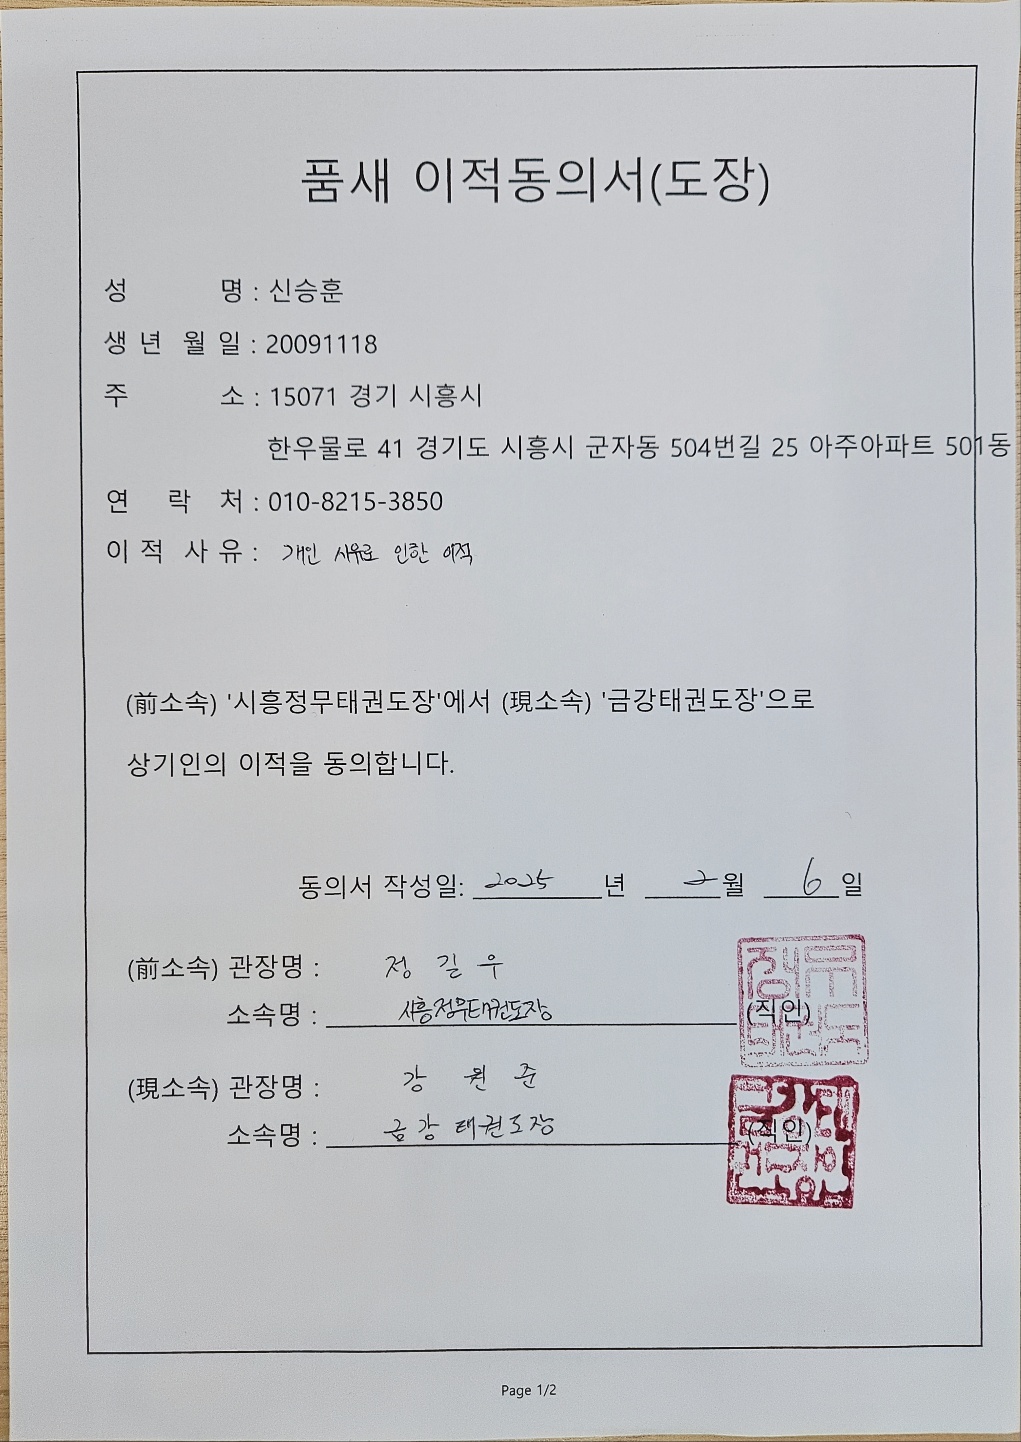 품새 이적동의서(도장)
성 명 : 신승훈
생 년 월 일 : 20091118
주 소 : 15071 경기 시흥시
한우물로 41 경기도 시흥시 군자동 504번길 25 아주아파트 501동
연 락 처 : 010-8215-3850
이 적 사 유 : 개인 사유로 인한 이적
(前소속) '시흥정무태권도장'에서 (現소속) '금강태권도장'으로
상기인의 이적을 동의합니다.
동의서 작성일: 2025 년 2 월 6 일
(前소속) 관장명 : 정 길 우
소속명 : 시흥정무태권도장 (직인)
(現소속) 관장명 : 강 원 준
소속명 : 금강 태권도장 (직인)
Page 1/2